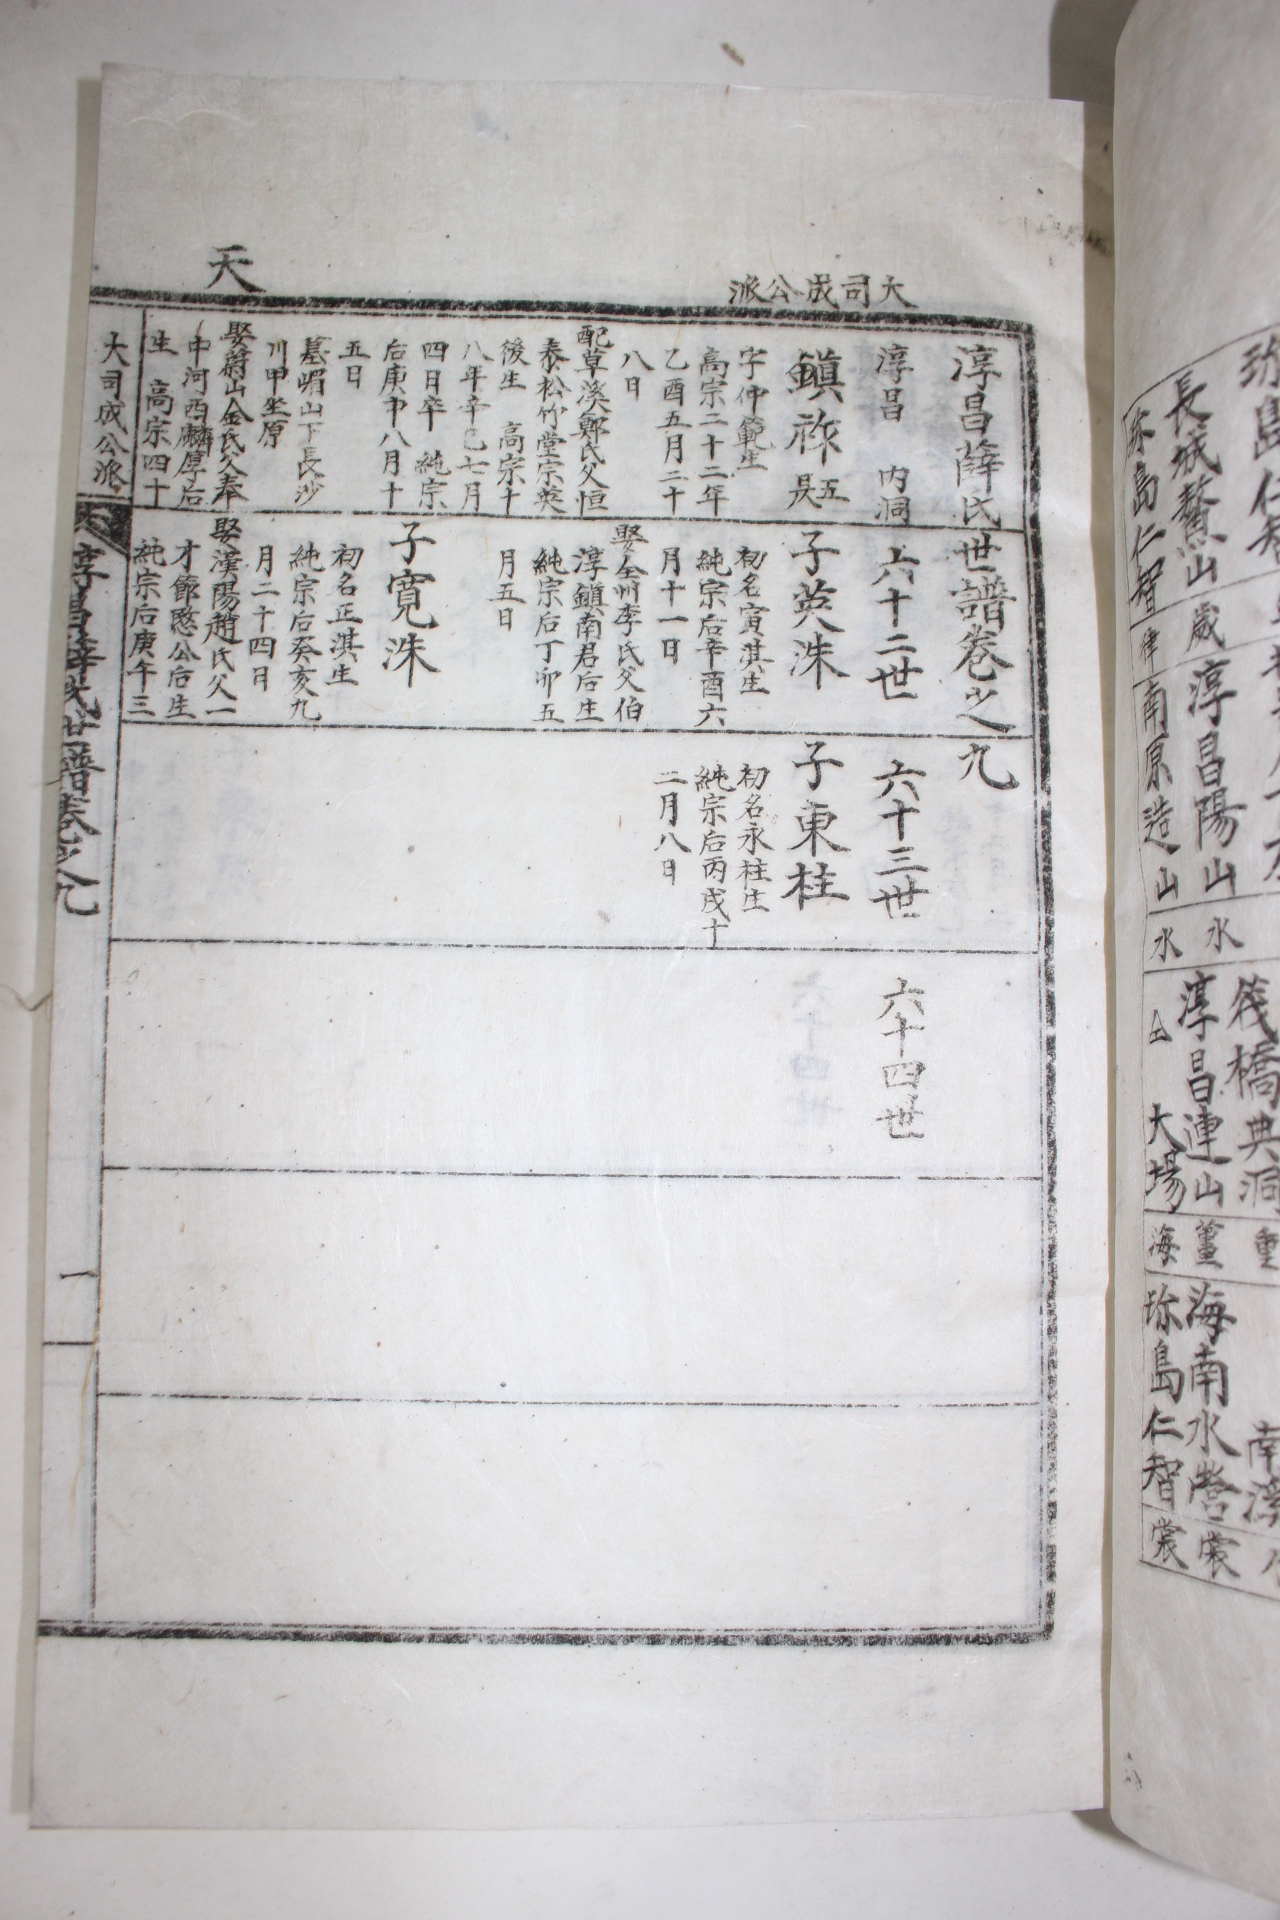 大司成公派
天
淳昌薛氏世譜卷之九
淳昌 內洞
六十二世
六十三世
六十四世
鎭祚 五昆
字仲範生
高宗二十二年
乙酉五月二十
八日
配草溪鄭氏父恒
泰松竹堂宗英
後生 高宗十
八年辛巳七月
四日卒 純宗
后庚申八月十
五日
墓嵋山下長沙
川甲坐原
娶蔚山金氏父奉
中河西麟厚后
生 高宗四十
子英洙
初名寅淇生
純宗后辛酉六
月十一日
娶全州李氏父伯
淳鎭南君后生
純宗后丁卯五
月五日
子寬洙
初名正淇生
純宗后癸亥九
月二十四日
娶漢陽趙氏父一
才節愍公后生
純宗后庚午三
子東柱
初名永柱生
純宗后丙戌十
二月八日
大司成公派
淳昌薛氏世譜卷之九
一
長城鰲山 歲 淳昌陽山 水 淳昌連山 薑 海南水營 裳
珍島仁智 律 南原造山 水 大場 海 珍島仁智 裳